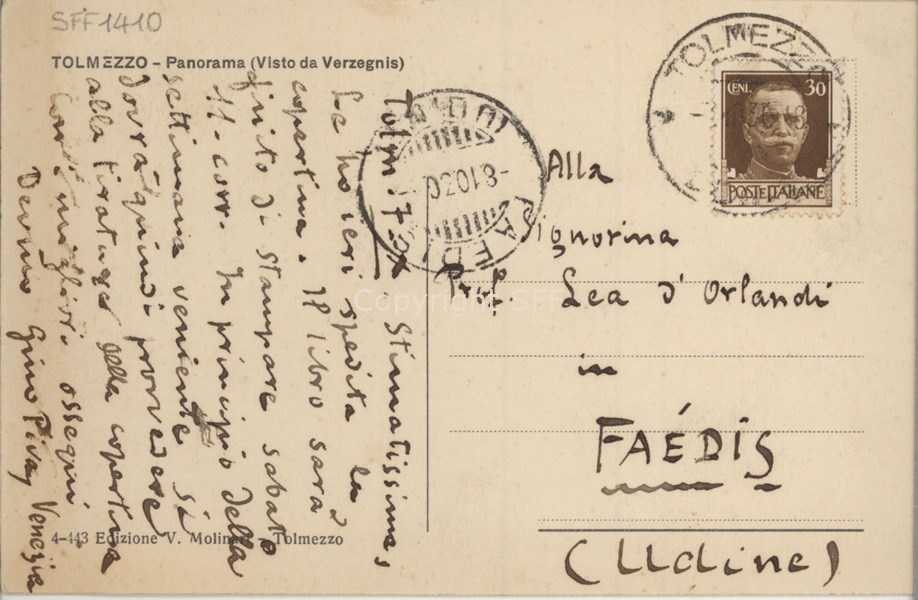 SFF1410
TOLMEZZO – Panorama (Visto da Verzegnis)
Stimatissima,
Le ho ieri spedita la
copertina. Il libro sarà
finito di stampare sabato
11 corr. In principio della
settimana veniente si
dovrà quindi provvedere
alla tiratura della copertina
Con i migliori ossequi
Devmo Gino Piva, Venezia
4-443 Edizione V. Molinari Tolmezzo
TOLMEZZO
CENI. 30
POSTE ITALIANE
FAEDIS
Alla
Signorina
Prof. Lea d'Orlandi
in
FAÉDIS
(Udine)
Copyright SFF